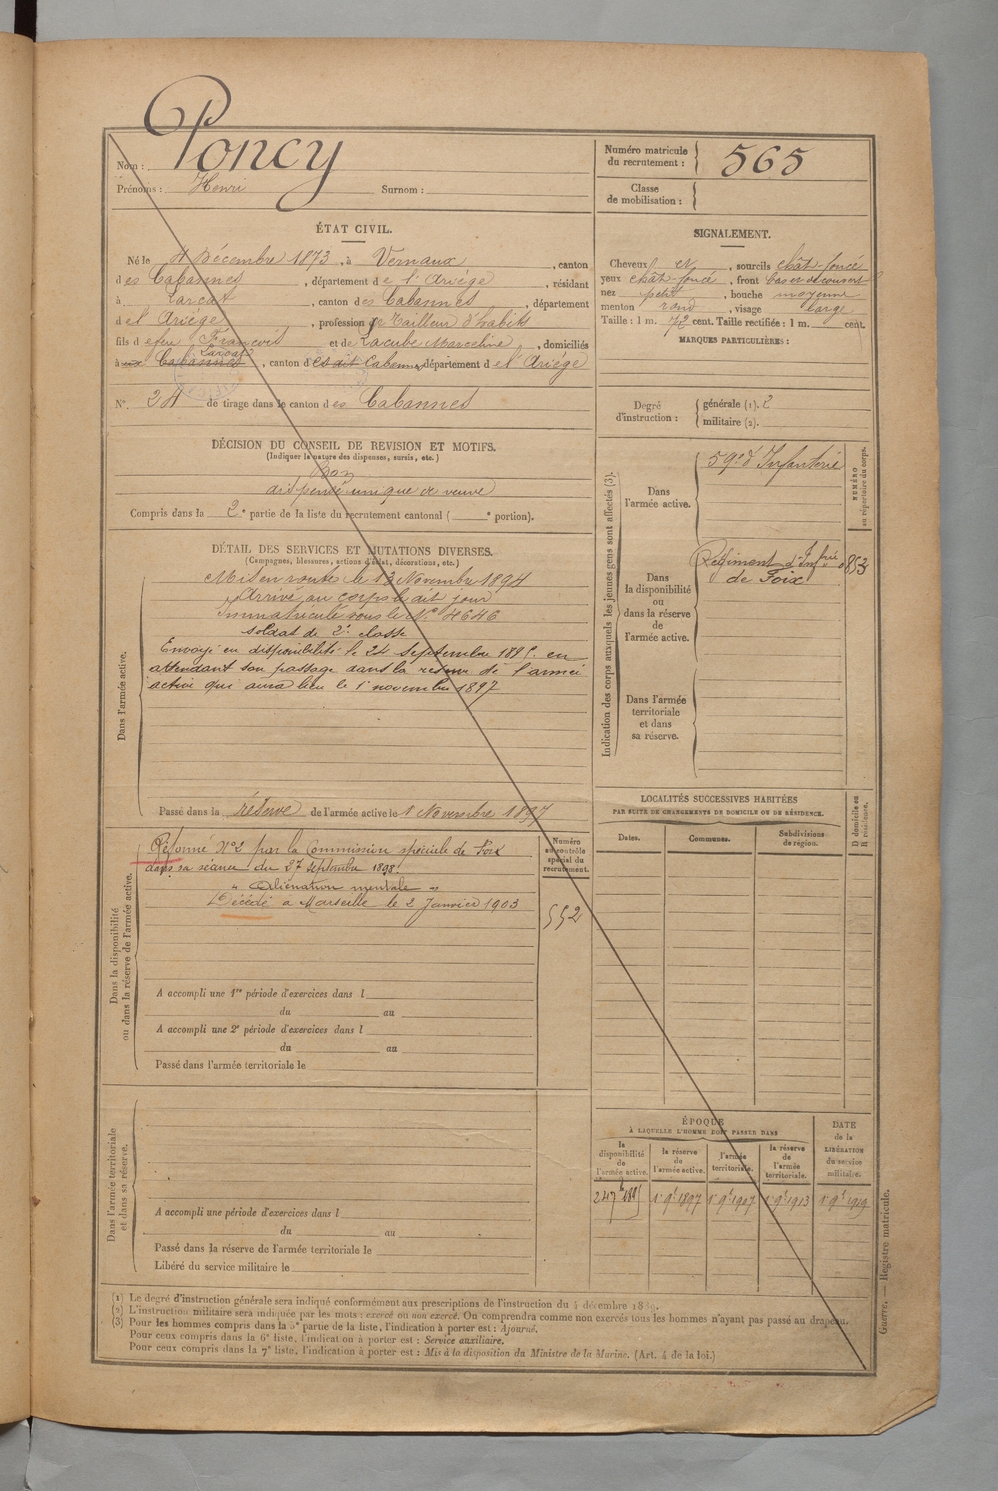 Nom : Poncy
Prénoms : Henri Surnom :
Numéro matricule du recrutement : 565
Classe de mobilisation :
ÉTAT CIVIL.
Né le 4 Décembre 1873, à Vernaux, canton
des Cabannes, département de l'Ariége, résidant
à Larcat, canton des Cabannes, département
de l'Ariége, profession de tailleur d'habits
fils de feu François et de Lacube Marceline, domiciliés
Larcat
à Cabannes, canton des dit Cabannes département de l'Ariége
N° 24 de tirage dans le canton des Cabannes
SIGNALEMENT.
Cheveux et, sourcils chât-foncé
yeux chât-foncé, front bas et découvert
nez petit, bouche moyenne
menton rond, visage large
Taille : 1 m. 72 cent. Taille rectifiée : 1 m. cent.
MARQUES PARTICULIÈRES :
Degré d'instruction : générale (1). 2
militaire (2).
DÉCISION DU CONSEIL DE REVISION ET MOTIFS.
(Indiquer la nature des dispenses, sursis, etc.)
Bon
dispensé unique de veuve
Compris dans la 2e partie de la liste du recrutement cantonal ( e portion).
DÉTAIL DES SERVICES ET MUTATIONS DIVERSES.
(Campagnes, blessures, actions d'éclat, décorations, etc.)
Dans l'armée active.
Mis en route le 13 Novembre 1894
Arrivé au corps le dit jour
Immatriculé sous le N° 4646
soldat de 2e classe
Envoyé en disponibilité le 24 septembre 1895 en
attendant son passage dans la reserve de l'armée
active qui aura lieu le 1er novembre 1897
Passé dans la réserve de l'armée active le 1 Novembre 1897
Indication des corps auxquels les jeunes gens sont affectés (3).
NUMÉRO au répertoire du corps.
Dans l'armée active.
59e d'Infanterie
Dans la disponibilité ou dans la réserve de l'armée active.
Régiment d'Infrie
de Foix
853
Dans l'armée territoriale et dans sa réserve.
LOCALITÉS SUCCESSIVES HABITÉES
PAR SUITE DE CHANGEMENTS DE DOMICILE OU DE RÉSIDENCE.
Dates. Communes. Subdivisions de région. D domicile ou R résidence.
Dans la disponibilité ou dans la réserve de l'armée active.
Numéro au contrôle spécial du recrutement.
552
Réformé N°2 par la Commission spéciale de Foix
dans sa séance du 27 Septembre 1898.
" Aliénation mentale "
Décédé a Marseille le 2 Janvier 1903
A accompli une 1re période d'exercices dans l
du au
A accompli une 2e période d'exercices dans l
du au
Passé dans l'armée territoriale le
Dans l'armée territoriale et dans sa réserve.
A accompli une période d'exercices dans l
du au
Passé dans la réserve de l'armée territoriale le
Libéré du service militaire le
ÉPOQUE
À LAQUELLE L'HOMME DOIT PASSER DANS
la disponibilité de l'armée active. la réserve de l'armée active. l'armée territoriale. la réserve de l'armée territoriale.
DATE de la LIBÉRATION du service militaire.
24 7bre 1895 1er 9bre 1897 1er 9bre 1907 1er 9bre 1913 1er 9bre 1919
Guerre. — Registre matricule.
(1) Le degré d'instruction générale sera indiqué conformément aux prescriptions de l'instruction du 4 décembre 1889.
(2) L'instruction militaire sera indiquée par les mots : exercé ou non exercé. On comprendra comme non exercés tous les hommes n'ayant pas passé au drapeau.
(3) Pour les hommes compris dans la 5e partie de la liste, l'indication à porter est : Ajourné.
Pour ceux compris dans la 6e liste, l'indication à porter est : Service auxiliaire.
Pour ceux compris dans la 7e liste, l'indication à porter est : Mis à la disposition du Ministre de la Marine. (Art. 4 de la loi.)